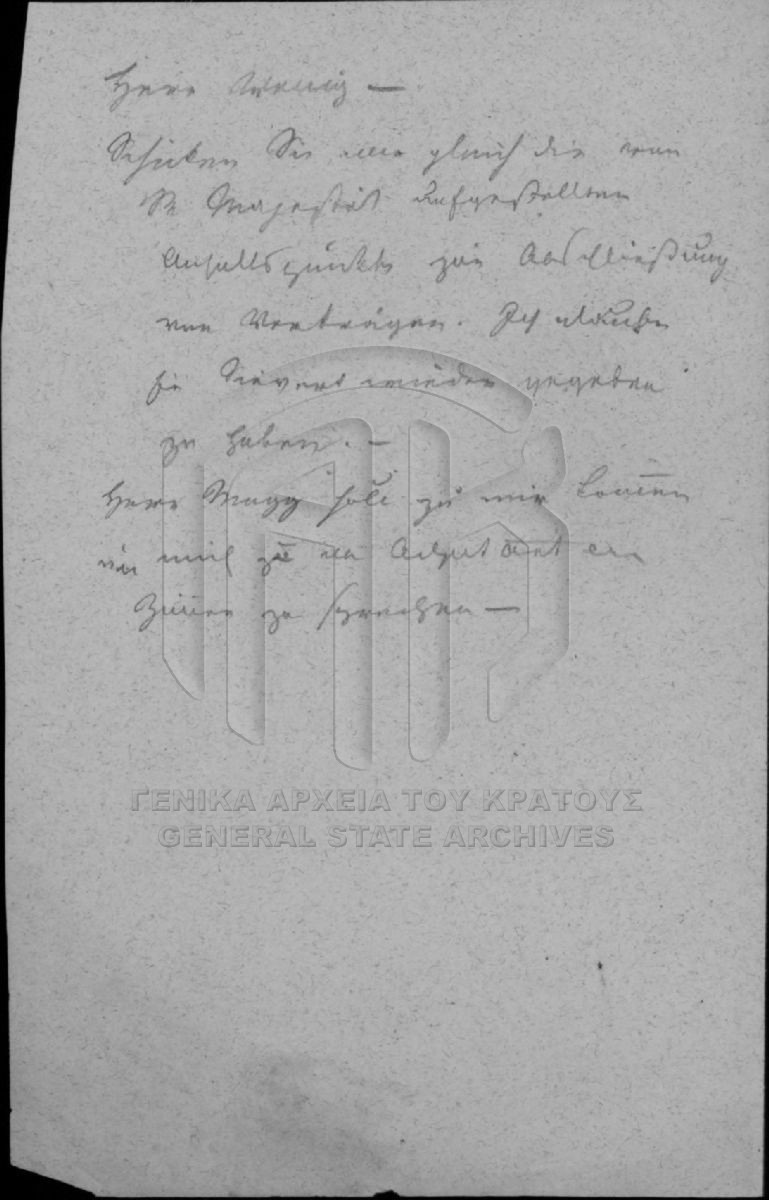 Herr Wenig —
Schicken Sie mir gleich die von
Sr Majestät aufgestellten
Anhaltspunkte zur Abschließung
von Verträgen. Ich glaube
sie Sievert wieder gegeben
zu haben. —
Herr Magg soll zu mir kommen
mich zu
Zimmer zu sprechen —
ΓΕΝΙΚΑ ΑΡΧΕΙΑ ΤΟΥ ΚΡΑΤΟΥΣ
GENERAL STATE ARCHIVES